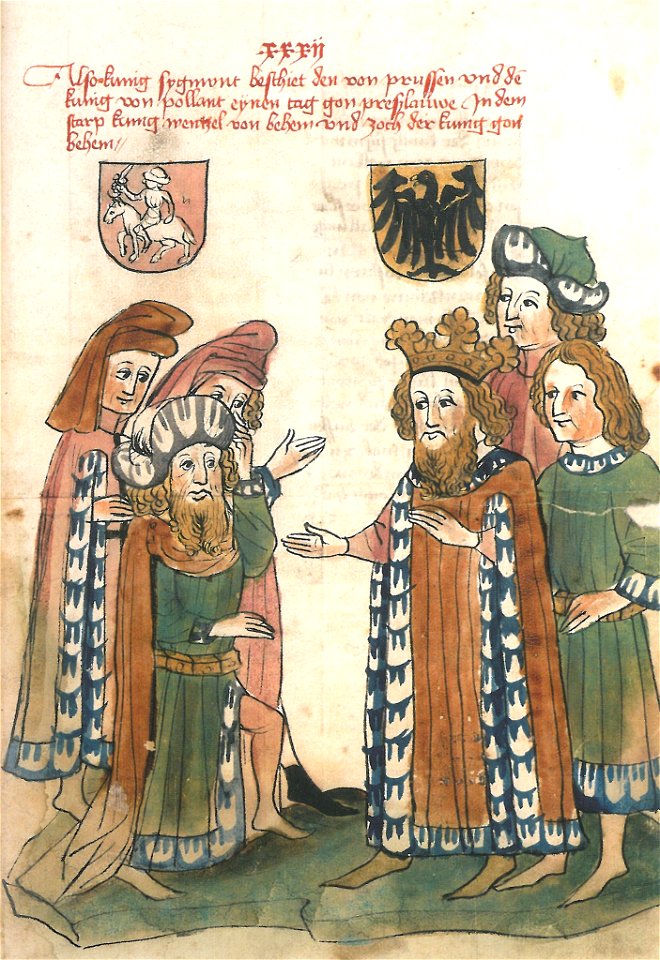 xxxij
Also kunig sygmont beschiet den von prussen vnd dē
kunig von pollant eynen tag gon preszlauwe In dem
starp kunig wentzel von behem vnd zoch der kunig gon
behem